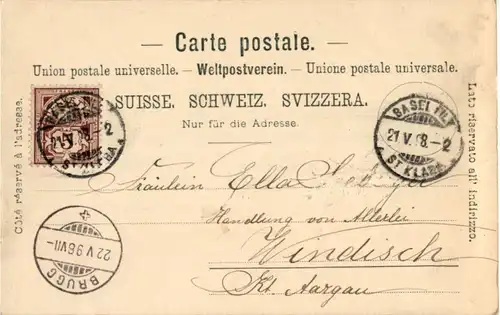 — Carte postale. —
Union postale universelle. — Weltpostverein. — Unione postale universale.
SUISSE. SCHWEIZ. SVIZZERA.
Nur für die Adresse.
Côté réservé à l'adresse.
Lato riservato all' indirizzo.
5
2
BASEL FIL.
21.V.98.-2
ST. KLARA
Fräulein Ella
Handlung von Allerlei
Windisch
Kt. Aargau
BRUGG
22.V.98.VII-